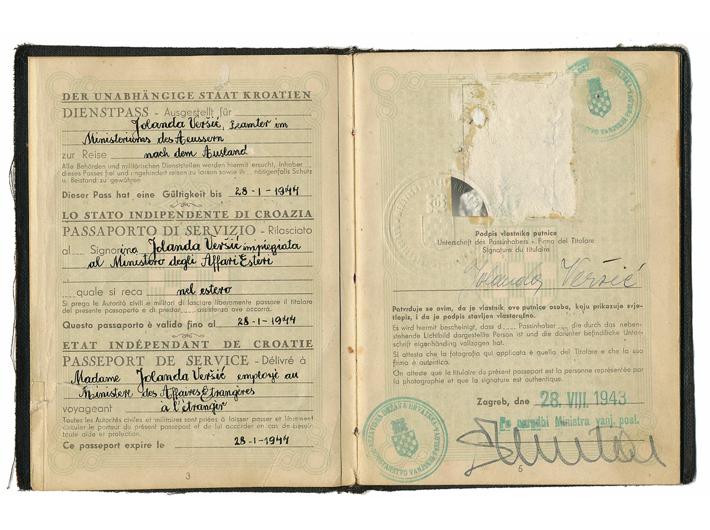 DER UNABHÄNGIGE STAAT KROATIEN
DIENSTPASS - Ausgestellt für
Jolanda Veršić, Beamter im
Ministeriums des Aeussern
zur Reise nach dem Ausland
Alle Behörden und militärischen Dienststellen werden hiermit ersucht, Inhaber
dieses Passes frei und ungehindert reisen zu lassen sowie ih nötigenfalls Schutz
u. Beistand zu gewähren
Dieser Pass hat eine Gültigkeit bis 28-1-1944
LO STATO INDIPENDENTE DI CROAZIA
PASSAPORTO DI SERVIZIO - Rilasciato
al Signorina Jolanda Veršić impiegata
al Ministoro degli Affari Esteri
quale si reca nel estero
Si prega le Autorità civili e militari di lasciare liberamente passare il titolare
del presente passaporto e di predar assistenza ove occorra.
Questo passaporto è valido fino al 28-1-1944
ETAT INDÉPENDANT DE CROATIE
PASSEPORT DE SERVICE - Délivré à
Madame Jolanda Veršić employé au
Ministère des Affaires Etrangères
voyageant à l'étranger
Toutes les Autorités civiles et militaires sont priées à laisser passer et librement
circuler le porteur du présent passeport et de lui accorder en cas de besoin
toute aide et protection.
Ce passeport expire le 28-1-1944
3
Podpis vlastnika putnice
Unterschrift des Passinhabers - Firma del Titolare
Signature du titulaire
Jolanda Veršić
Potvrdjuje se ovim, da je vlastnik ove putnice osoba, koju prikazuje svje-
tlopis, i da je podpis stavljen vlastoručno.
Es wird hiermit bescheinigt, dass d Passinhaber die durch das neben-
stehende Lichtbild dargestellte Person ist und die darunter befindliche Unter-
schrift eigenhändig vollzogen hat.
Si attesta che la fotografia qui applicata è quella del Titolare e che la sua
firma è autentica.
On atteste que le titulaire du présent passeport est la personne représentée par
la photographie et que la signature est authentique.
Zagreb, dne 28. VIII. 1943
Po naredbi Ministra vanj. posl.
5